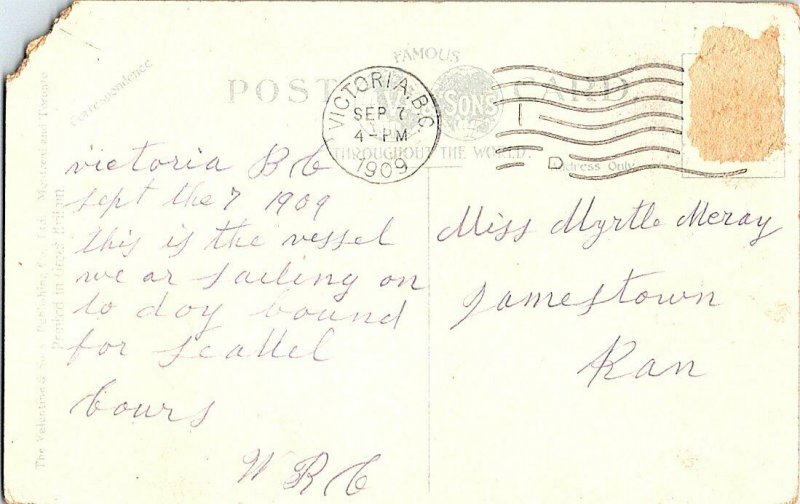 FAMOUS
POST CARD.
& SONS
THROUGHOUT THE WORLD.
Correspondence
Address Only
VICTORIA, B.C.
SEP 7
4-PM
1909
D
victoria B C
sept the 7 1909
this is the vessel
we ar sailing on
to day bound
for seattel
yours
W R C
Miss Myrtle Meray
Jamestown
Kan
The Valentine & Sons Publishing Co., Ltd., Montreal and Toronto
Printed in Great Britain